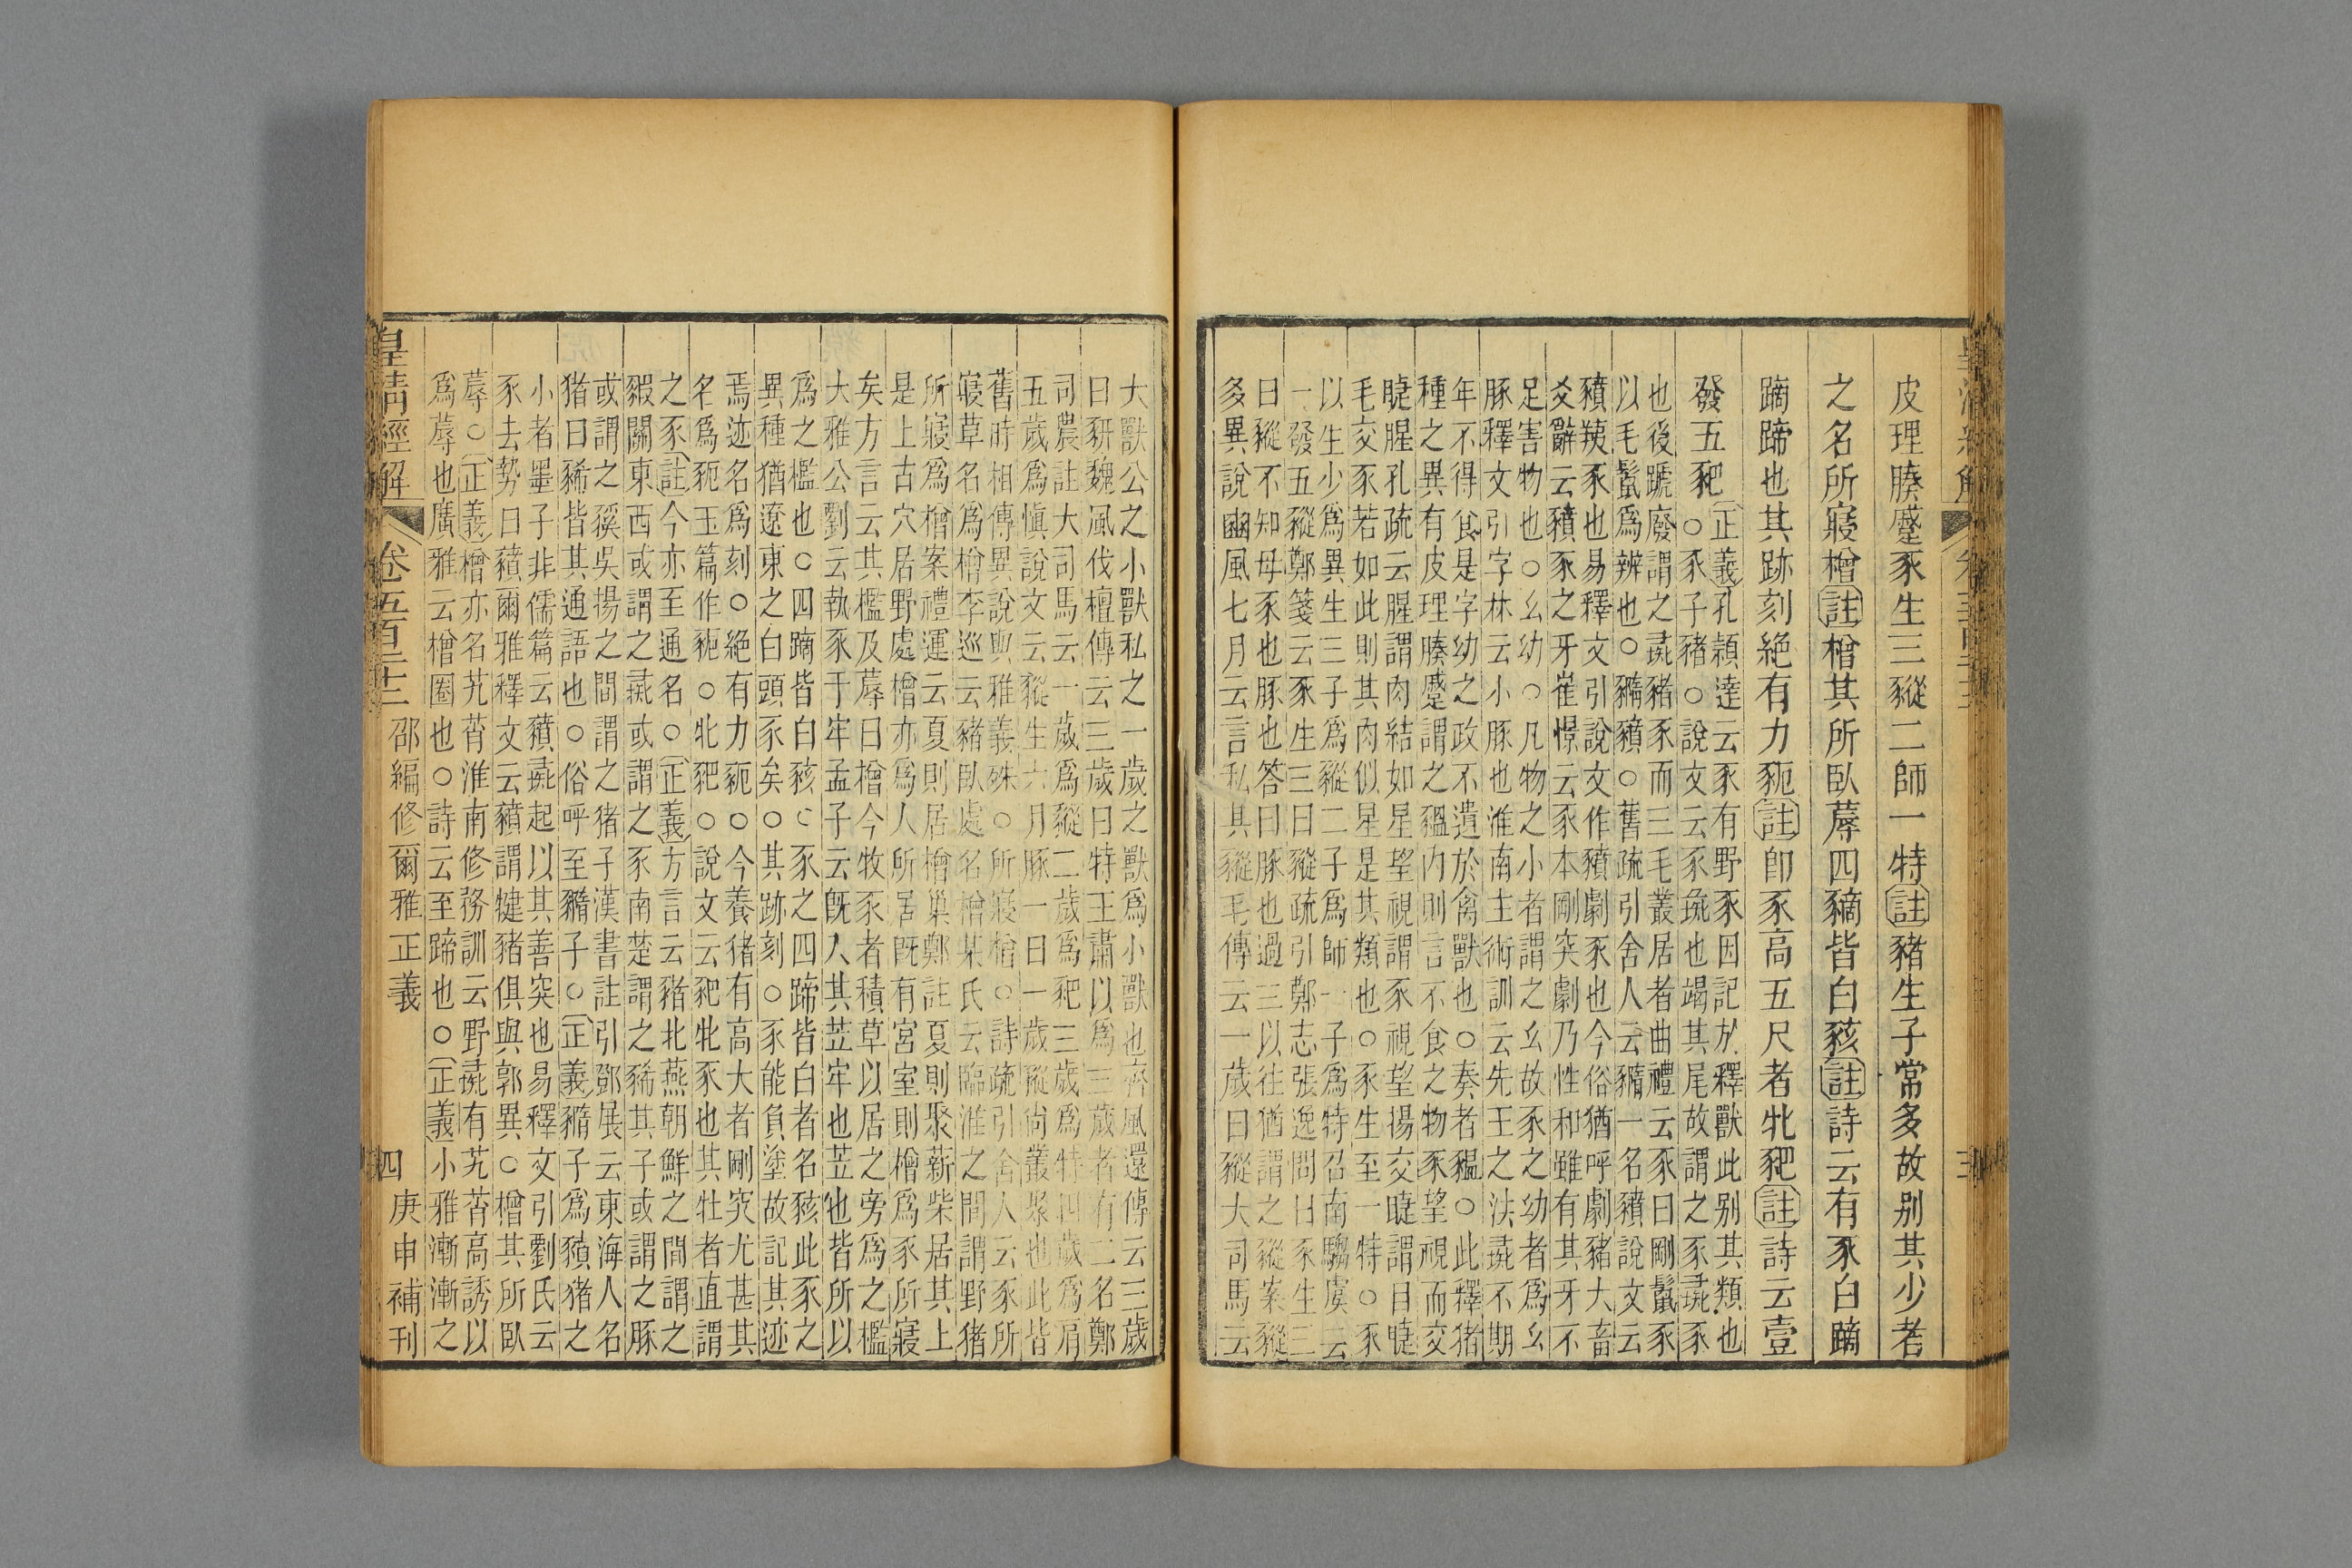 皮理腠蹙豕生三豵二師一特註豬生子常多故别其少者
之名所寢橧註橧其所臥蓐四豴皆白豥註詩云有豕白蹢
蹢蹄也其跡刻絶有力豟註卽豕高五尺者牝豝註詩云壹
發五豝
正義孔穎達云豕有野豕因記於釋獸此别其類也
○豕子豬○說文云豕彘也竭其尾故謂之豕彘豕
也後蹏廢謂之彘豬豕而三毛叢居者曲禮云豕曰剛鬛豕
以毛鬛爲辨也○豶豮○舊疏引舍人云豶一名豮說文云
豮羠豕也易釋文引說文作豮劇豕也今俗猶呼劇豬大畜
爻辭云豮豕之牙崔憬云豕本剛突劇乃性和雖有其牙不
足害物也○幺幼○凡物之小者謂之幺故豕之幼者爲幺
豚釋文引字林云小豚也淮南主術訓云先王之法彘不期
年不得食是字幼之政不遺於禽獸也○奏者豱○此釋猪
種之異有皮理腠蹙謂之豱內則言不食之物豕望視而交
睫腥孔疏云腥謂肉結如星望視謂豕視望揚交睫謂目睫
毛交豕若如此則其肉似星是其類也○豕生至一特○豕
以生少爲異生三子爲豵二子爲師一子爲特召南騶虞云
一發五豵鄭箋云豕生三曰豵疏引鄭志張逸問曰豕生三
曰豵不知母豕也豚也答曰豚也過三以往猶謂之豵案豵
多異說豳風七月云言私其豵毛傳云一歲曰豵大司馬云
大獸公之小獸私之一歲之獸爲小獸也齊風還傳云三歲
曰豜魏風伐檀傳云三歲曰特王肅以爲三歲者有二名鄭
司農註大司馬云一歲爲豵二歲爲豝三歲爲特四歲爲肩
五歲爲愼說文云豵生六月豚一曰一歲豵尙叢聚也此皆
舊時相傳異說與雅義殊○所寢橧○詩疏引舍人云豕所
寢草名爲橧李巡云豬臥處名橧某氏云臨淮之間謂野猪
所寢爲橧案禮運云夏則居橧巢鄭註夏則聚薪柴居其上
是上古穴居野處橧亦爲人所居旣有宮室則橧爲豕所寢
矣方言云其檻及蓐曰橧今牧豕者積草以居之旁爲之檻
大雅公劉云執豕于牢孟子云旣入其苙牢也苙也皆所以
爲之檻也○四蹢皆白豥○豕之四蹄皆白者名豥此豕之
異種猶遼東之白頭豕矣○其跡刻○豕能負塗故記其迹
焉迹名爲刻○絶有力豟○今養猪有高大者剛突尤甚其
名爲豟玉篇作豟○牝豝○說文云豝牝豕也其牡者直謂
之豕註今亦至通名○正義方言云豬北燕朝鮮之間謂之
豭關東西或謂之彘或謂之豕南楚謂之豨其子或謂之豚
或謂之豯吳揚之間謂之猪子漢書註引鄧展云東海人名
猪曰豨皆其通語也○俗呼至豶子○正義豶子爲豮猪之
小者墨子非儒篇云豮彘起以其善突也易釋文引劉氏云
豕去勢曰豮爾雅釋文云豮謂犍豬俱與郭異○橧其所臥
蓐○正義橧亦名艽莦淮南修務訓云野彘有艽莦高誘以
爲蓐也廣雅云橧圈也○詩云至蹄也○正義小雅漸漸之
皇淸經解 卷五百二十三 邵編修爾雅正義 四 庚申補刊